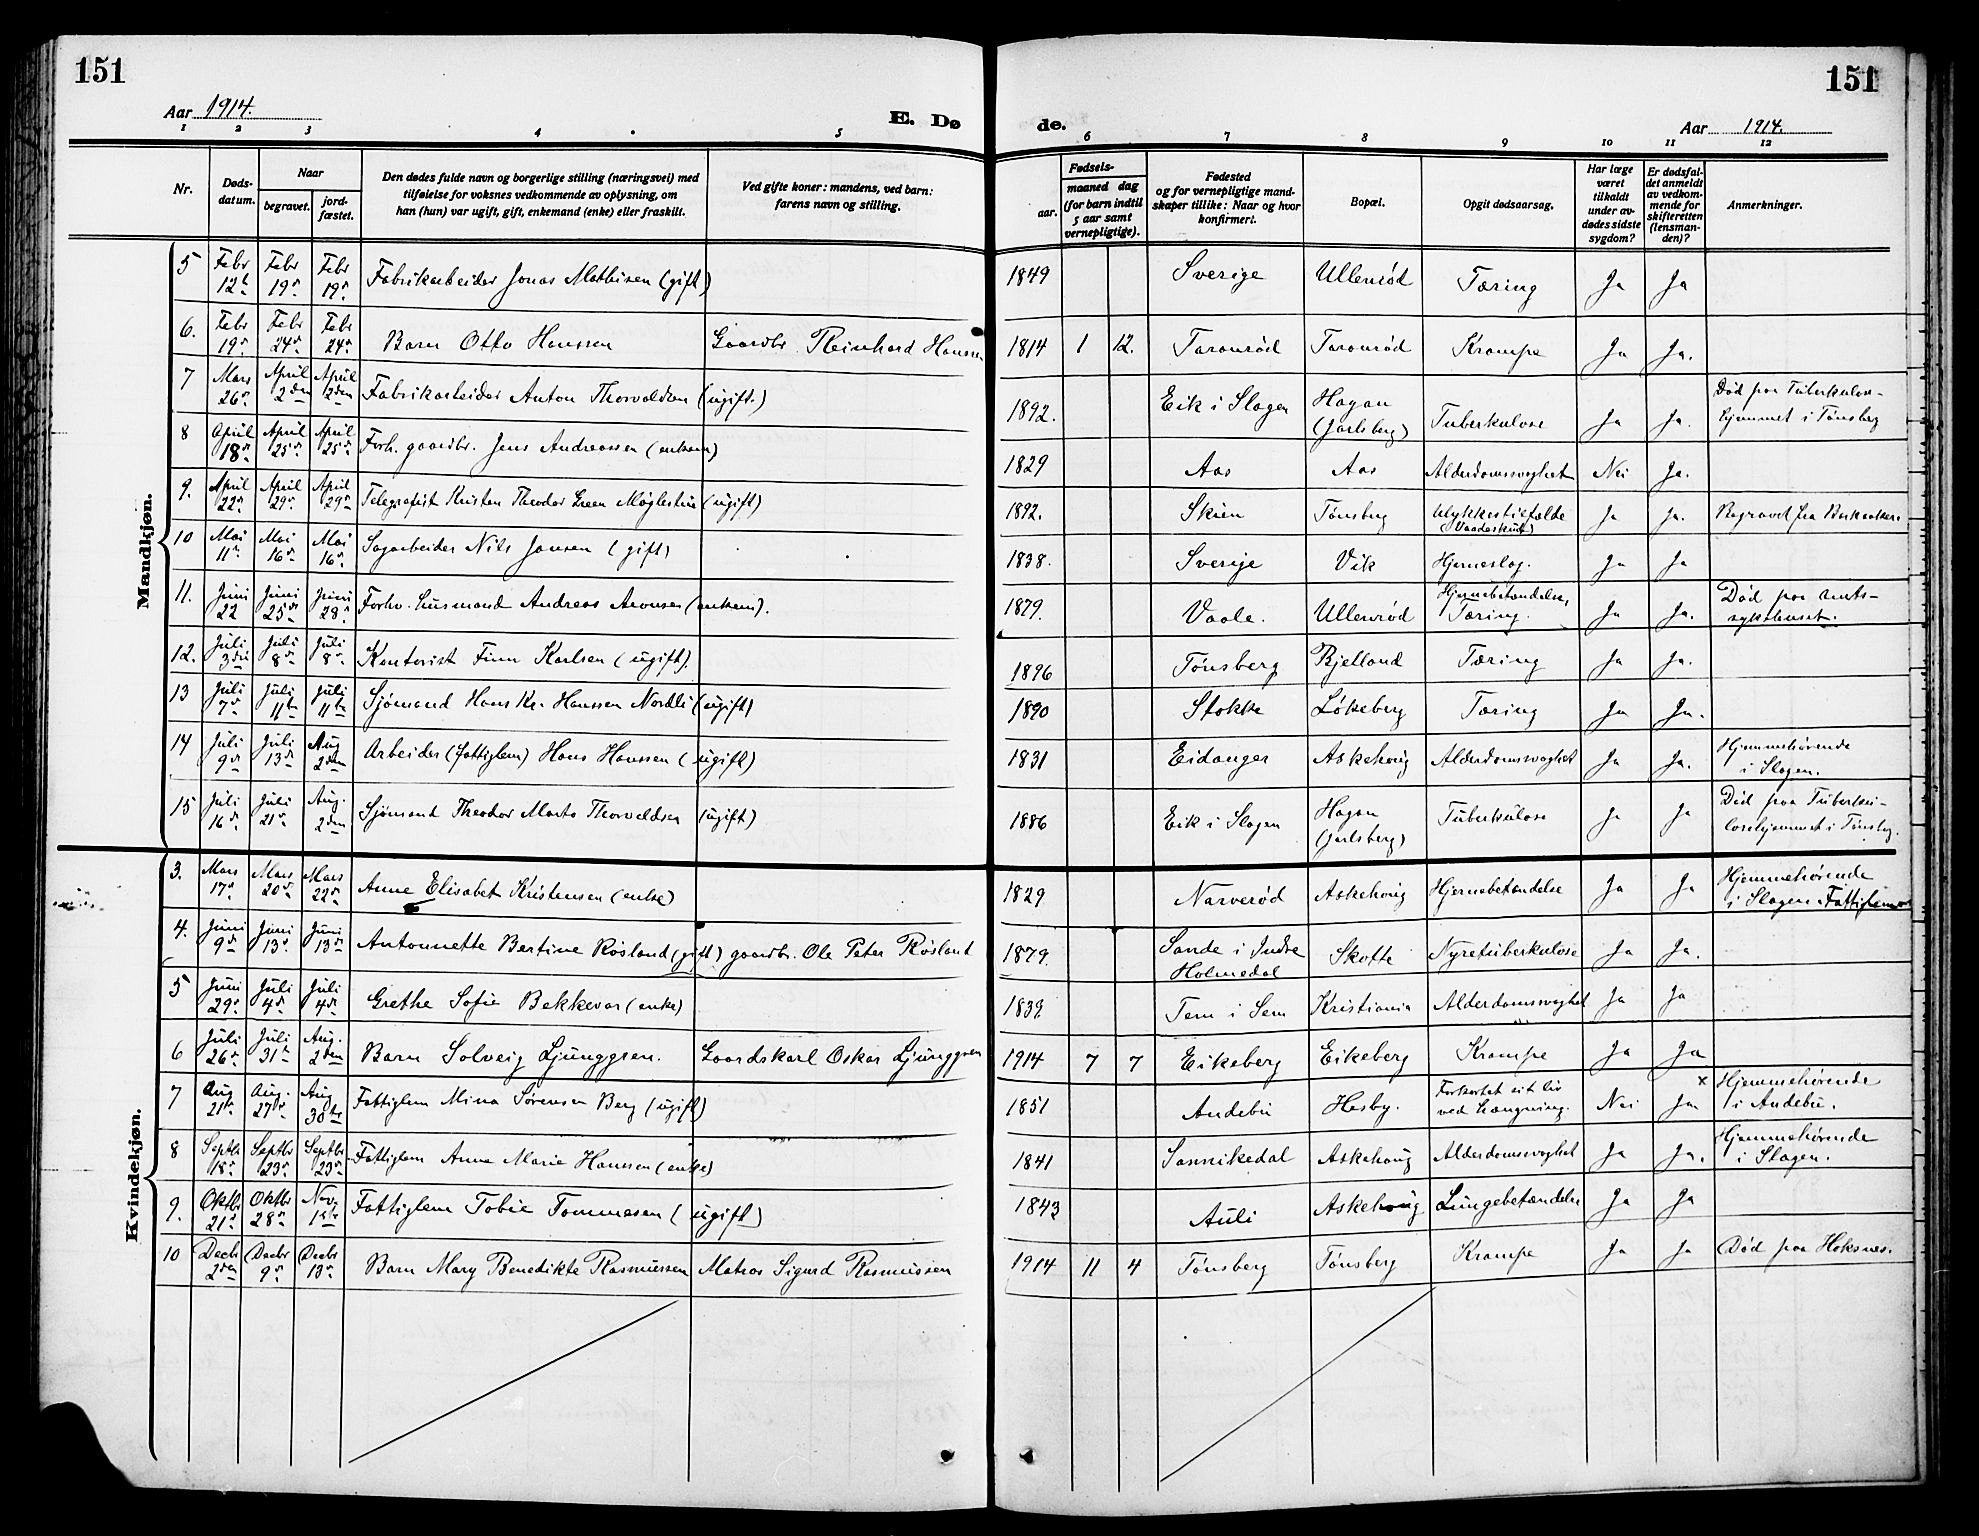 151
151
Aar 1914.
E. Dø
de.
Aar 1914.
1 2 3 4 5 6 7 8 9 10 11 12
Nr.
Døds-
datum.
Naar
begravet.
jord-
fæstet.
Den dødes fulde navn og borgerlige stilling (næringsvei) med
tilføielse for voksnes vedkommende av oplysning, om
han (hun) var ugift, gift, enkemand (enke) eller fraskilt.
Ved gifte koner: mandens, ved barn:
farens navn og stilling.
Fødsels-
aar.
maaned dag
(for barn indtil
5 aar samt
vernepligtige).
Fødested
og for vernepligtige mand-
skaper tillike: Naar og hvor
konfirmert.
Bopæl.
Opgit dødsaarsag.
Har læge
været
tilkaldt
under av-
dødes sidste
sygdom?
Er dødsfal-
det anmeldt
av vedkom-
mende for
skifteretten
(lensman-
den)?
Anmerkninger.
Mandkjøn.
5 Febr 12te Febr 19de Febr 19de Fabrikarbeider Jonas Mathisen (gift) 1849 Sverige Ullenrød Tæring Ja Ja
6. Febr 19de Febr 24de Febr 24de Barn Otto Hanssen Gaardbr. Reinhard Hanssen 1814 1 12. Taranrød Taranrød Krampe Ja Ja.
7 Mars 26de April 2den April 2den Fabrikarbeider Anton Thorvaldsen (ugift.) 1892. Eik i Slagen Hagan (Jarlsberg) Tuberkulose Ja Ja. Død paa Tuberkulose-
hjemmet i Tønsberg
8 April 18de April 25de April 25de Forh. gaardbr. Jens Andreassen (enkem) 1829 Aas Aas Alderdomssvaghet Nei Ja.
9. April 22de April 29de April 29de Telegrafist Kristen Theodor Green Møglestue (ugift) 1892. Skien Tønsberg Ulykkestilfælde (Vaadeskud) Ja Ja. Begravet fra
10 Mai 11te Mai 16de Mai 16de Sagarbeider Nils Jansen (gift) 1838. Sverige Vik Hjerneslag. Ja Ja
11. Juni 22 Juni 25de Juni 28de Forhv. husmand Andreas Aronsen (enkem). 1879. Vaale. Ullenrød Hjernebetændelse, Tæring. Ja Ja. Død paa Amts-
sykehuset.
12. Juli 3die Juli 8de Juli 8de Kontorist Finn Karlsen (ugift). 1896 Tønsberg Bjelland Tæring Ja Ja.
13 Juli 7de Juli 11te Juli 11te Sjømand Hans Kr. Hanssen Nordli (ugift) 1890 Stokke Løkeberg Tæring Ja Ja.
14 Juli 9de Juli 13de Aug 2den Arbeider (fattiglem) Hans Hanssen (ugift) 1831 Eidanger Askehoug Alderdomssvaghet Ja Ja. Hjemmehørende
i Slagen.
15 Juli 16de Juli 21de Aug. 2den Sjømand Theodor Marto Thorvaldsen (ugift) 1886 Eik i Slagen Hagan (Jarlsberg) Tuberkulose Ja Ja Død paa Tuberku-
losehjemmet i Tønsbg.
Kvindekjøn.
3. Mars 17de Mars 20de Mars 22de Anne Elisabet Kristensen (enke) 1829 Narverød Askehoug Hjernebetændelse Ja Ja Hjemmehørende
i Slagen. Fattiglem
4. Juni 9de Juni 13de Juni 13de Antonnette Bertine Røsland (gift) gaardbr. Ole Peter Røsland 1879. Sande i Indre Holmedal Skotte Nyretuberkulose Ja Ja.
5 Juni 29de Juli 4de Juli 4de Grethe Sofie Bekkevar (enke) 1839 Tem i Sem Kristiania Alderdomssvaghet Ja Ja
6 Juli 26de Juli 31te Aug. 2den Barn Solveig Ljunggren. Gaardskarl Oskar Ljunggren 1914 7 7 Eikeberg Eikeberg Krampe Ja Ja
7 Aug 21de Aug. 27de Aug 30te Fattiglem Mina Sørensen Berg (ugift) 1851 Andebu Hesby. Forkortet sit liv ved hængning. Nei Ja x Hjemmehørende
i Andebu.
8 Septbr 18de Septbr 23de Septbr 23de Fattiglem Anne Marie Hanssen (enke) 1841 Sannikedal Askehoug Alderdomssvaghet Ja Ja. Hjemmehørende
i Slagen.
9. Oktbr 21de Oktbr 28de Nov. 1ste Fattiglem Tobie Tommesen (ugift) 1843 Auli Askehoug Lungebetændelse Ja Ja
10 Decbr 2den Decbr 9de Decbr 13de Barn Mary Benedikte Rasmussen Matros Sigurd Rasmussen 1914 11 4 Tønsberg Tønsberg Krampe Ja Ja Død paa Hoksnes.